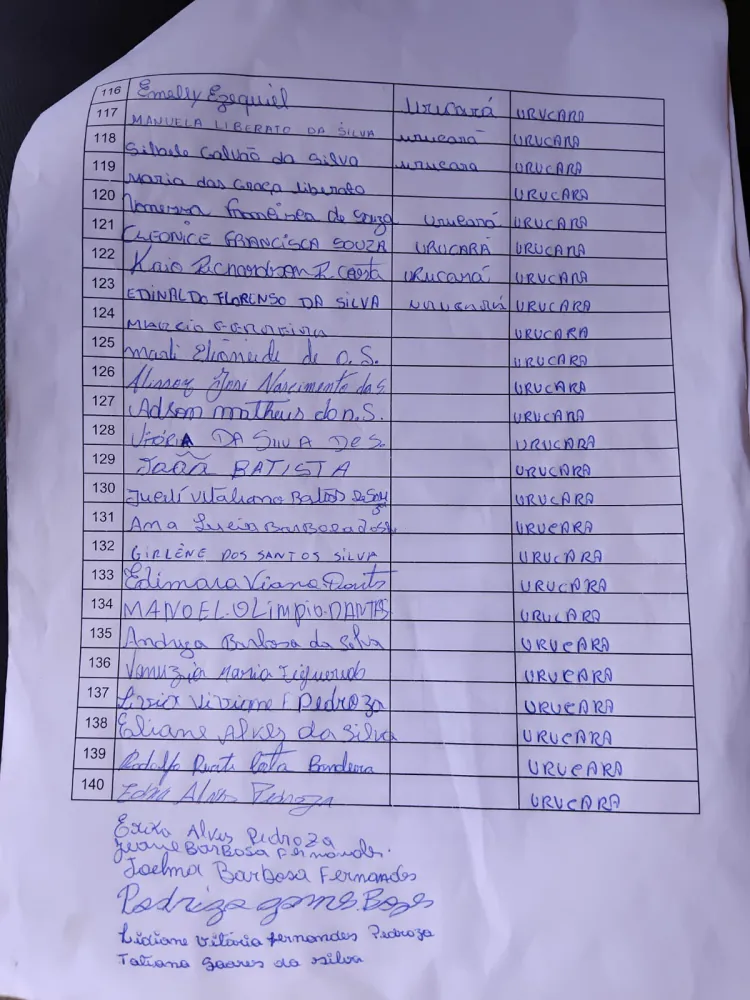 116 Emelly Ezequiel Urucará URUCARA
117 MANUELA LIBERATO DA SILVA urucará URUCARA
118 Galvão da Silva urucara URUCARA
119 Maria das Graça Liberato URUCARA
120 de Souza Urucará URUCARA
121 CLEONICE FRANCISCA SOUZA URUCARÁ URUCARA
122 Kaio R. Costa urucará URUCARA
123 EDINALDO FLORENSO DA SILVA URUCARA
124 Marcio Ferreira URUCARA
125 de O. S. URUCARA
126 Nascimento da S URUCARA
127 Adson Matheus do n. S. URUCARA
128 VITÓRIA DA SILVA De S. URUCARA
129 João BATISTA URUCARA
130 Vitaliano URUCARA
131 Ana Lucia Barbosa URUCARA
132 GIRLENE DOS SANTOS SILVA URUCARA
133 Edimara Viana URUCARA
134 MANOEL OLIMPIO DANTAS URUCARA
135 Andreza Barbosa da Silva URUCARA
136 Vanuzia Maria Figueredo URUCARA
137 Viviane F Pedroza URUCARA
138 Eliane Alves da Silva URUCARA
139 Rodolfo Costa Bandeira URUCARA
140 Alves Pedroza URUCARA
Alves Pedroza
Barbosa Fernandes.
Joelma Barbosa Fernandes
gomes
Lidiane Vitória fernandes Pedroza
Tatiana Soares da silva